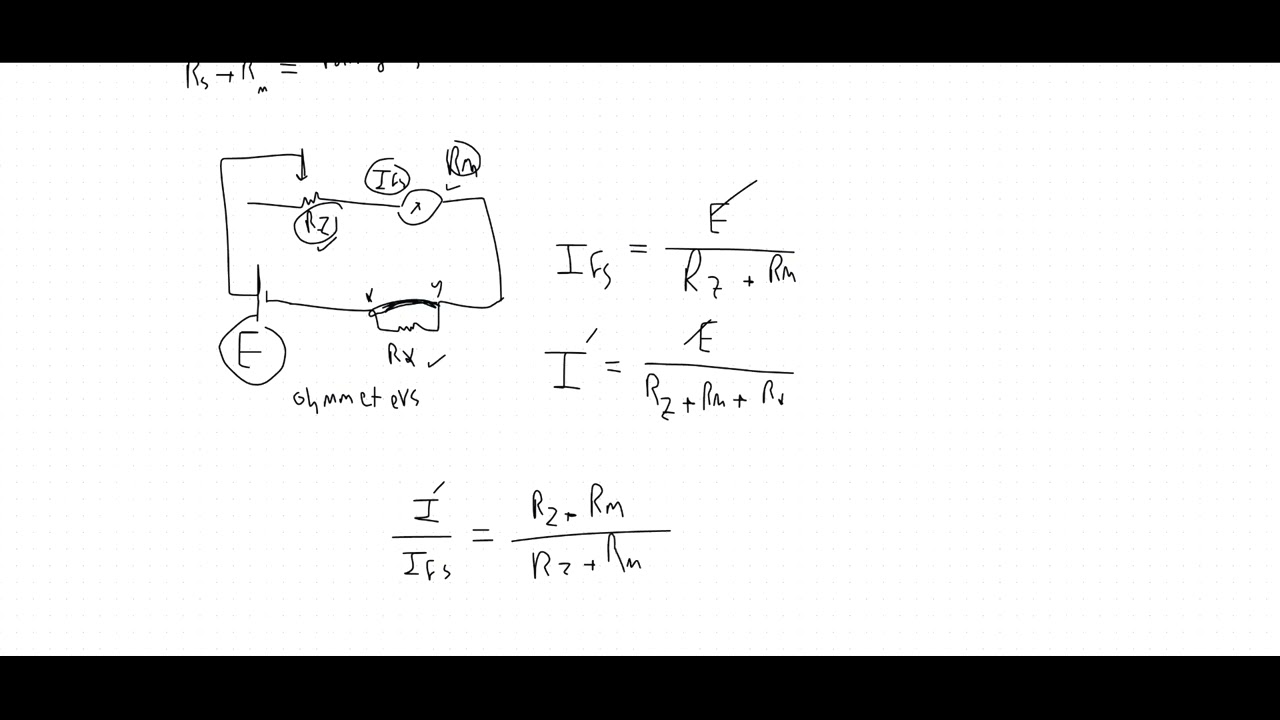 Rs → Rm =
IFs Rm
RZ
x y
E
Rx
ohmmeters
IFs = E / RZ + Rm
I' = E / RZ + Rm + Rx
I' / IFs = RZ + Rm / RZ + Rm